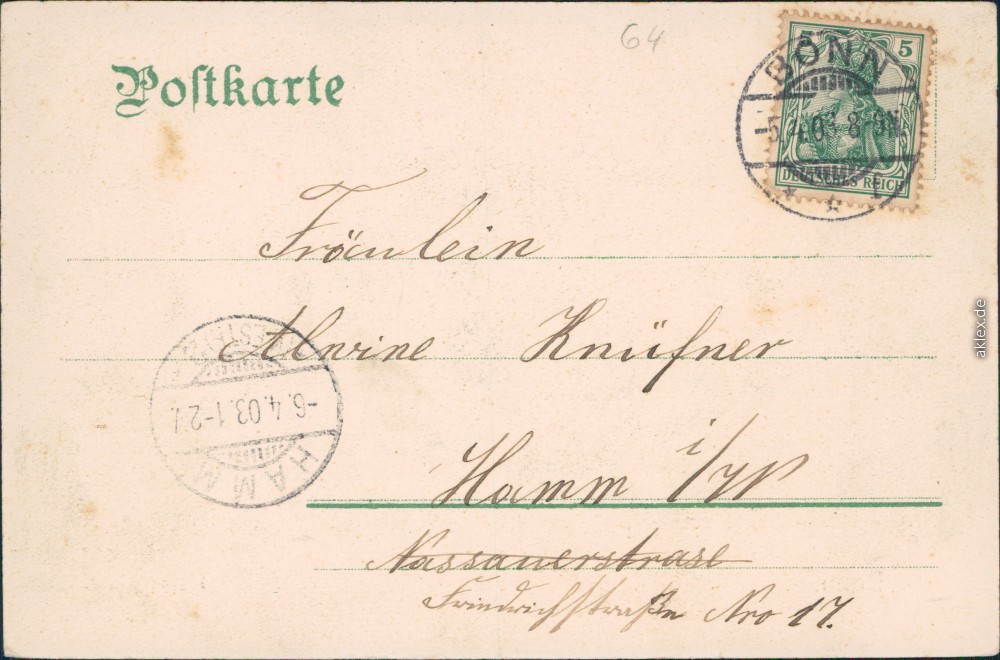 64
Postkarte
5 5
DEUTSCHES REICH
BONN
-5.4.03. 8-9N.
* c
Fräulein
Alwine Knüfner
Hamm i/W
Nassauerstrase
Friedrichstraße Nro 17.
HAMM
-6.4.03.1-2
(WESTF.)
aklex.de